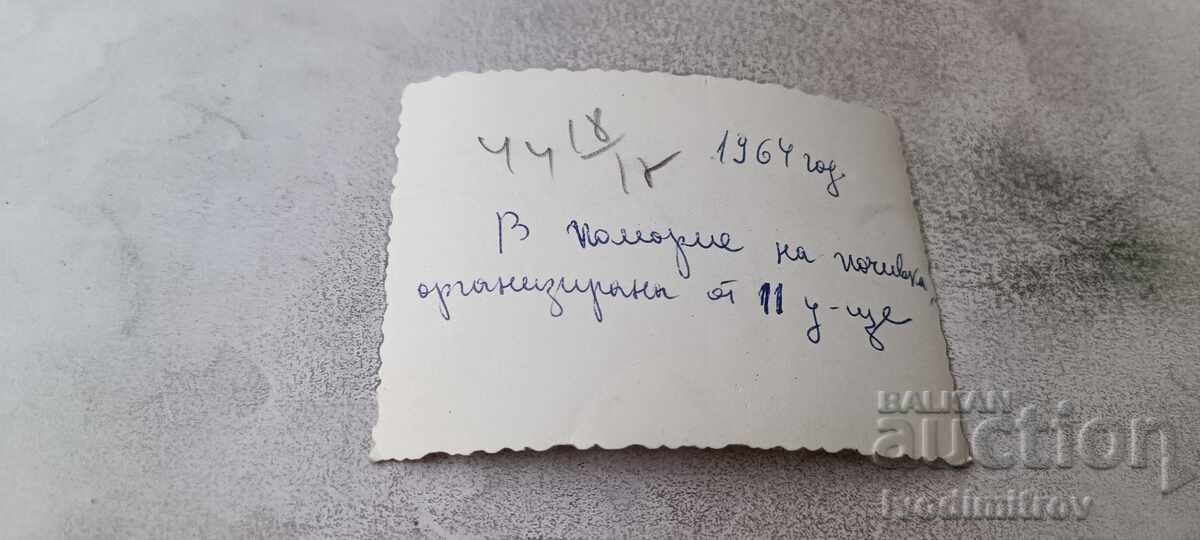 44 18/12 1964 год.
В Поморие на почивка,
организирана от 11 у-ще
BALKAN
auction
Ivodimitrov